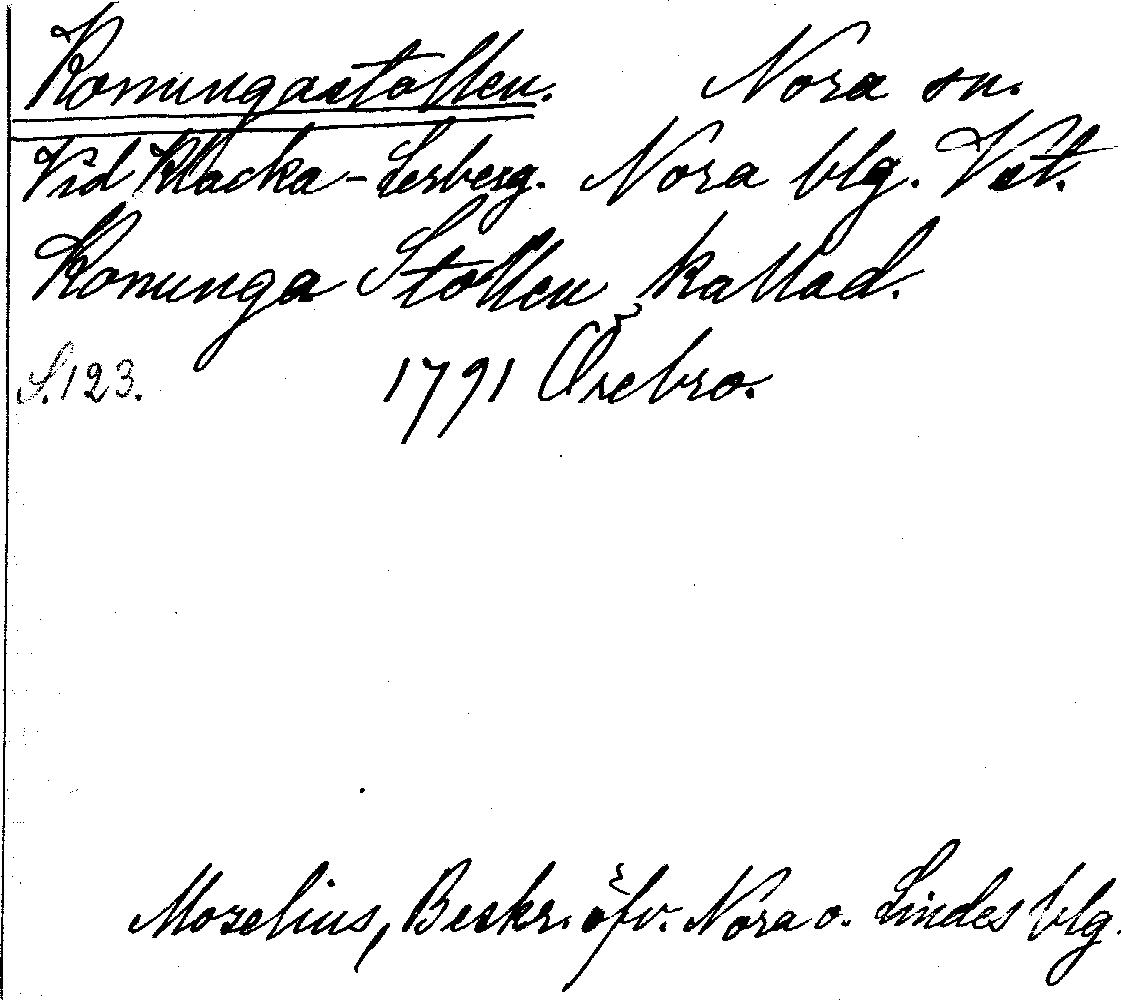 Konungastollen. Nora sn.
Vid Klacka-Lerberg. Nora blg. Vst.
Konunga Stollen kallad.
S. 123. 1791 Örebro.
Morelius, Beskr. öfv. Nora o. Lindes blg.